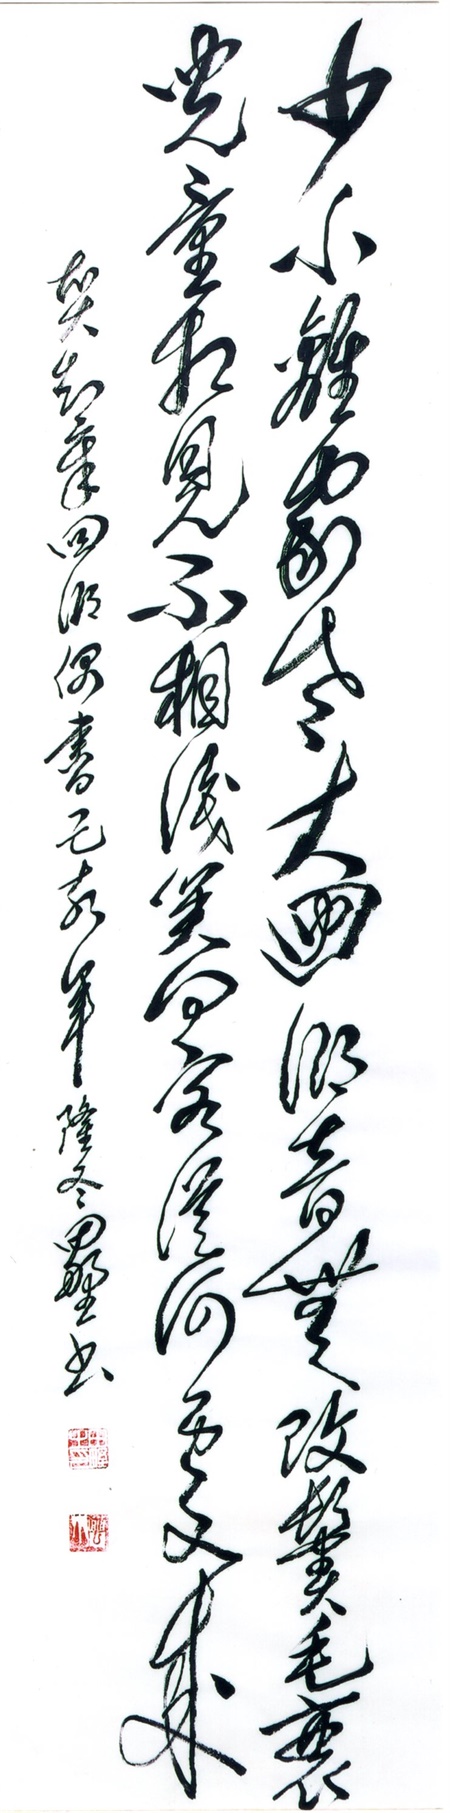 少小離家老大迴鄉音無改鬢毛衰
兒童相見不相識笑問客從何處來
賀知章回鄉偶書己亥年隆冬田書